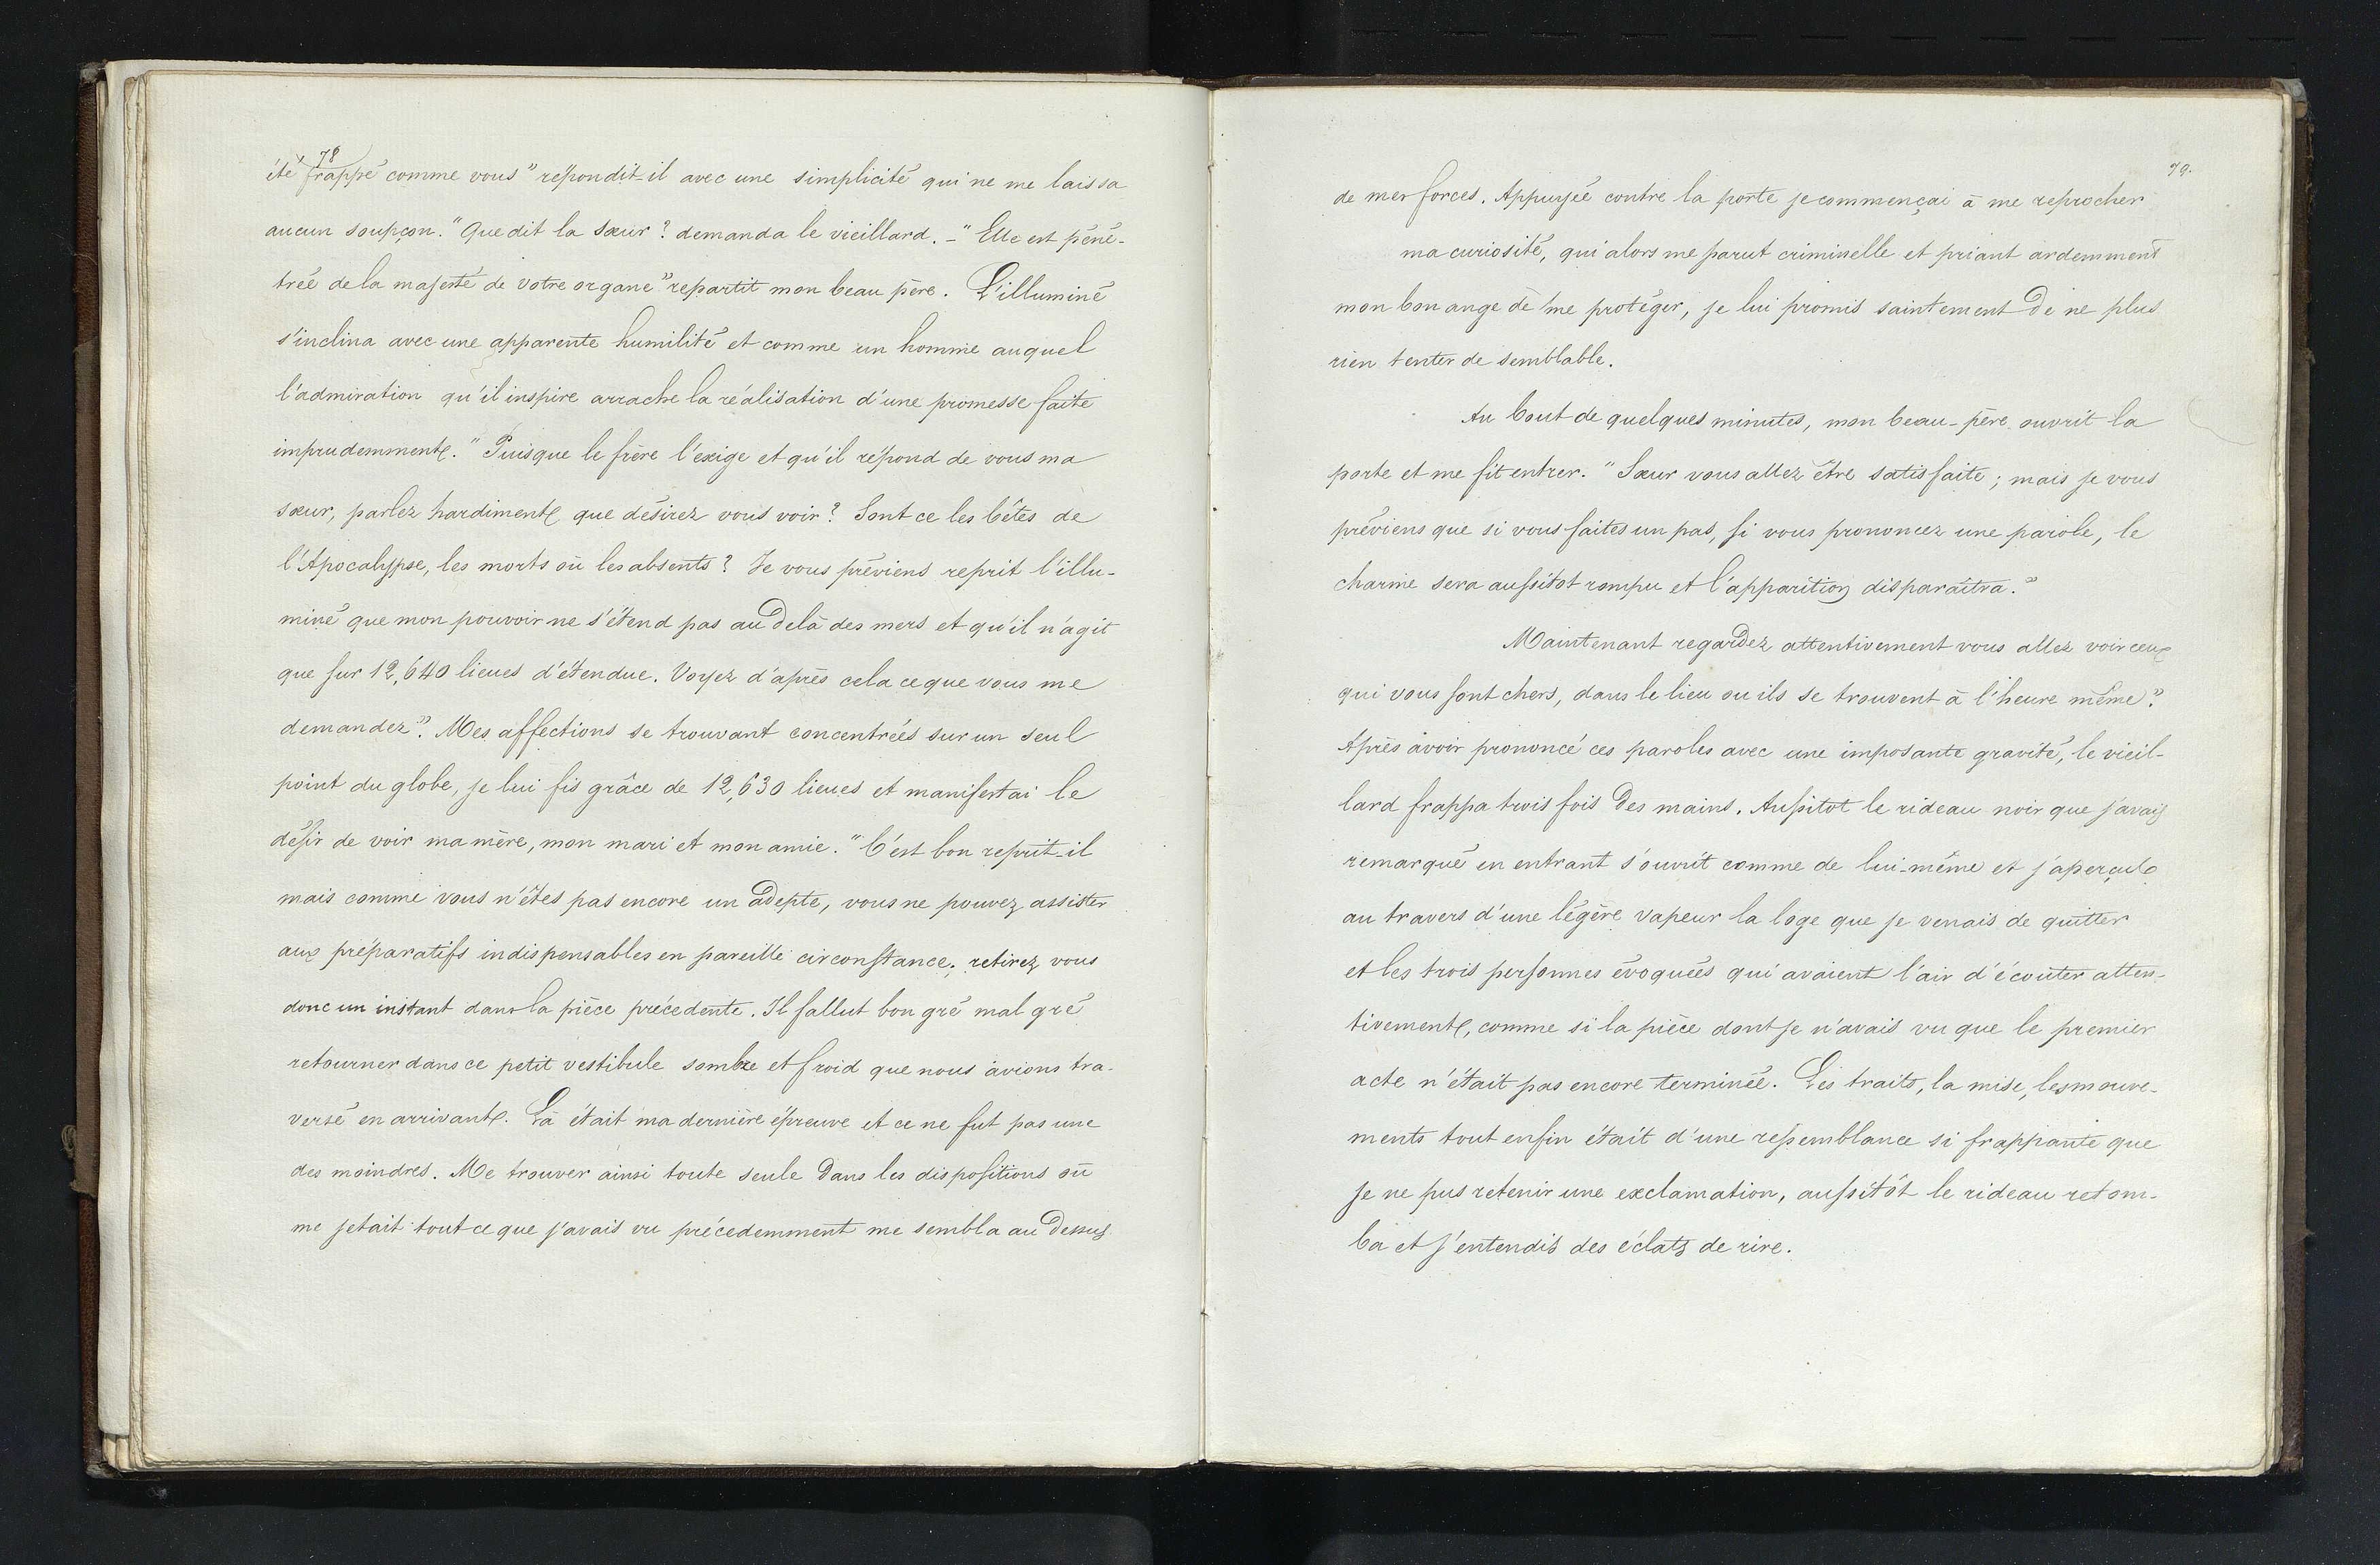 78
été frappé comme vous" répondit-il avec une simplicité qui ne me laissa
aucun soupçon. "Que dit la sœur? demanda le vieillard. – "Elle est péné-
trée de la majesté de votre organe" repartit mon beau père. L'illuminé
s'inclina avec une apparente humilité et comme un homme auquel
l'admiration qu'il inspire arrache la réalisation d'une promesse faite
imprudemment. "Puisque le frère l'exige et qu'il répond de vous ma
sœur, parlez hardiment que désirez vous voir? Sont ce les bêtes de
l'Apocalypse, les morts où les absents? Je vous préviens reprit l'illu-
miné que mon pouvoir ne s'étend pas au delà des mers et qu'il n'agit
que sur 12,640 lieues d'étendue. Voyez d'après cela ce que vous me
demandez". Mes affections se trouvant concentrées sur un seul
point du globe, je lui fis grâce de 12,630 lieues et manifestai le
désir de voir ma mère, mon mari et mon amie. "C'est bon reprit-il
mais comme vous n'êtes pas encore un adepte, vous ne pouvez assister
aux préparatifs indispensables en pareille circonstance; retirez vous
donc un instant dans la pièce précedente. Il fallut bon gré mal gré
retourner dans ce petit vestibule sombre et froid que nous avions tra-
versé en arrivant. Là était ma dernière épreuve et ce ne fut pas une
des moindres. Me trouver ainsi toute seule dans les dispositions où
me jetait tout ce que j'avais vu précedemment me sembla au dessus
79.
de mes forces. Appuyée contre la porte je commençai à me reprocher
ma curiosité, qui alors me parut criminelle et priant ardemment
mon bon ange de me protéger, je lui promis saintement de ne plus
rien tenter de semblable.
Au bout de quelques minutes, mon beau-père ouvrit la
porte et me fit entrer. "Sœur vous allez être satisfaite; mais je vous
préviens que si vous faites un pas, si vous prononcez une parole, le
charme sera aussitot rompu et l'apparition disparaîtra."
Maintenant regardez attentivement vous allez voir ceux
qui vous sont chers, dans le lieu ou ils se trouvent à l'heure même".
Après avoir prononcé ces paroles avec une imposante gravité, le vieil-
lard frappa trois fois des mains. Aussitot le rideau noir que j'avais
remarqué en entrant s'ouvrit comme de lui-même et j'aperçus
au travers d'une légère vapeur la loge que je venais de quitter
et les trois personnes évoquées qui avaient l'air d'écouter atten-
tivement, comme si la pièce dont je n'avais vu que le premier
acte n'était pas encore terminée. Les traits, la mise, les mouve-
ments tout enfin était d'une ressemblance si frappante que
je ne pus retenir une exclamation, aussitôt le rideau retom-
ba et j'entendis des éclats de rire.